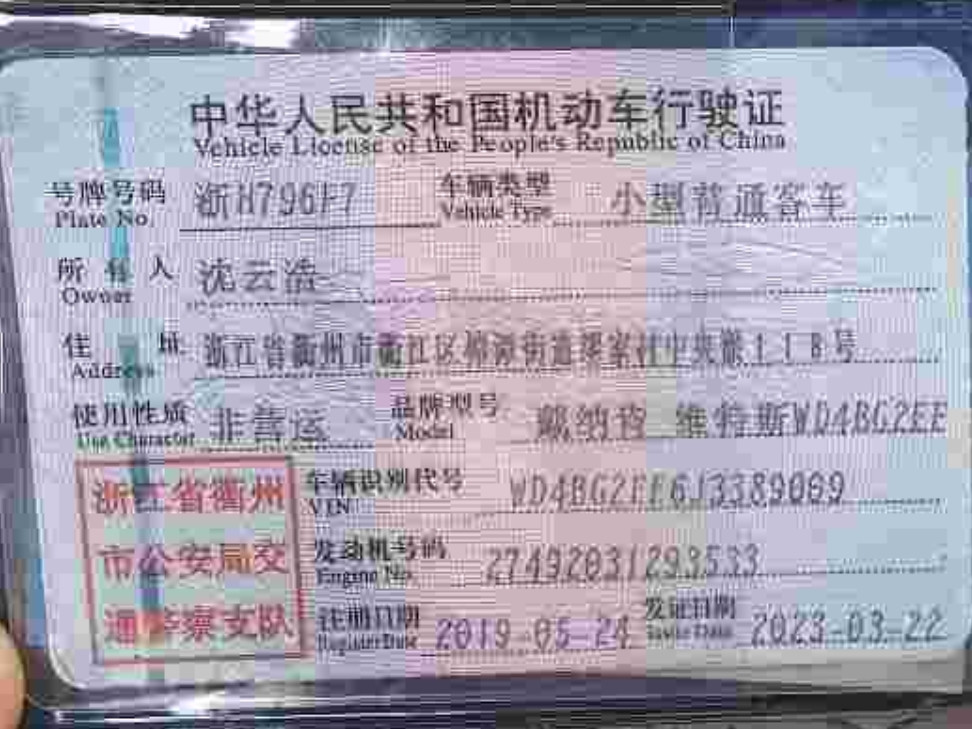 中华人民共和国机动车行驶证
Vehicle License of the People's Republic of China
号牌号码 浙H796F7 车辆类型 小型普通客车
Plate No. Vehicle Type
所有人 沈云浩
Owner
住址 浙江省衢州市衢江区樟潭街道 118号
Address
使用性质 非营运 品牌型号 戴纳肯 维特斯WD4BG2EE
Use Character Model
浙江省衢州
市公安局交
通警察支队
车辆识别代号 WD4BG2EE6J3389099
VIN
发动机号码 27492031293533
Engine No.
注册日期 2019-05-24 发证日期 2023-03-22
Register Date Issue Date